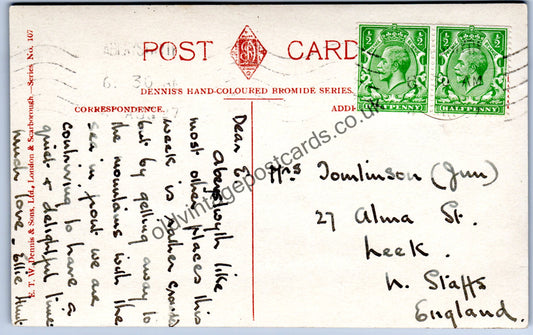 POST CARD
DENNIS'S HAND-COLOURED BROMIDE SERIES.
CORRESPONDENCE.
E. T. W. Dennis & Sons, Ltd., London & Scarborough.—Series No. 107
Dear E
Aberystwyth like
most other places this
week is rather crowded
but by getting away to
the mountains with the
sea in front we are
contriving to have a
quiet & delightful time
much love - Ellie Hunt
Mrs Tomlinson (Jun)
27 Alma St.
Leek.
N. Staffs
England.
½ ½
HALFPENNY
½ ½
HALFPENNY
6. 30
oldvintagepostcards.co.uk